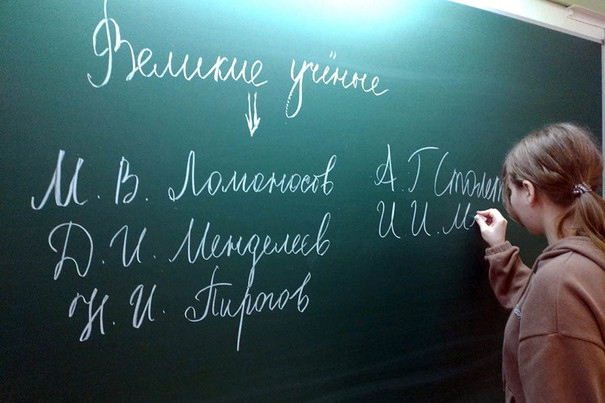 Великие учёные
М. В. Ломоносов
Д. И. Менделеев
Н. И. Пирогов
А. Г Столет
И И. М